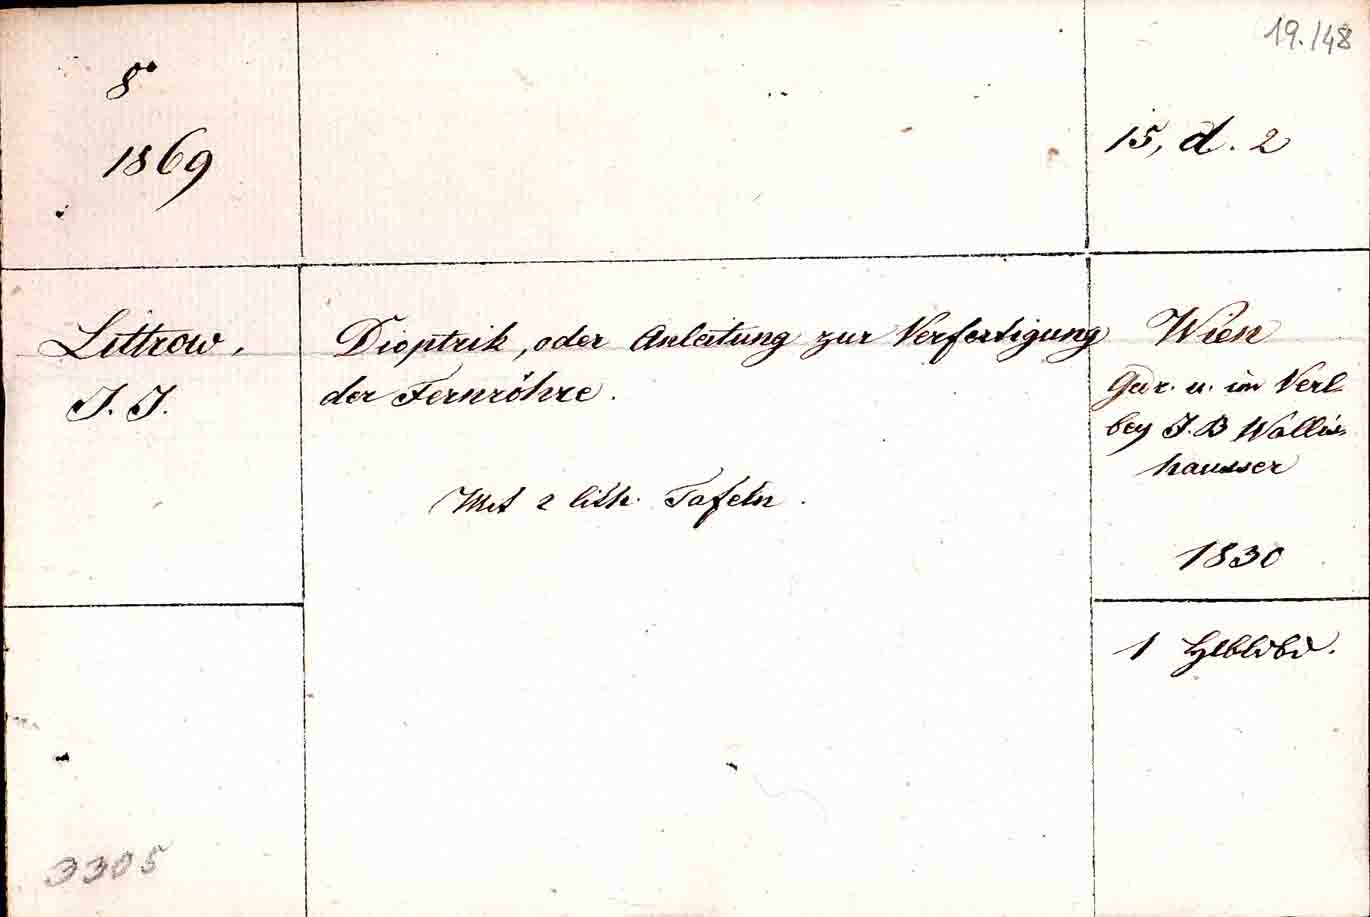 19.148
8°
1869
15, d. 2
Littrow,
J. J.
Dioptrik, oder Anleitung zur Verfertigung
der Fernröhre.
Mit 2 lith. Tafeln.
Wien
Gedr. u. im Verl
bey J. B Wallis-
hausser
1830
1 Hlblwbd.
3305